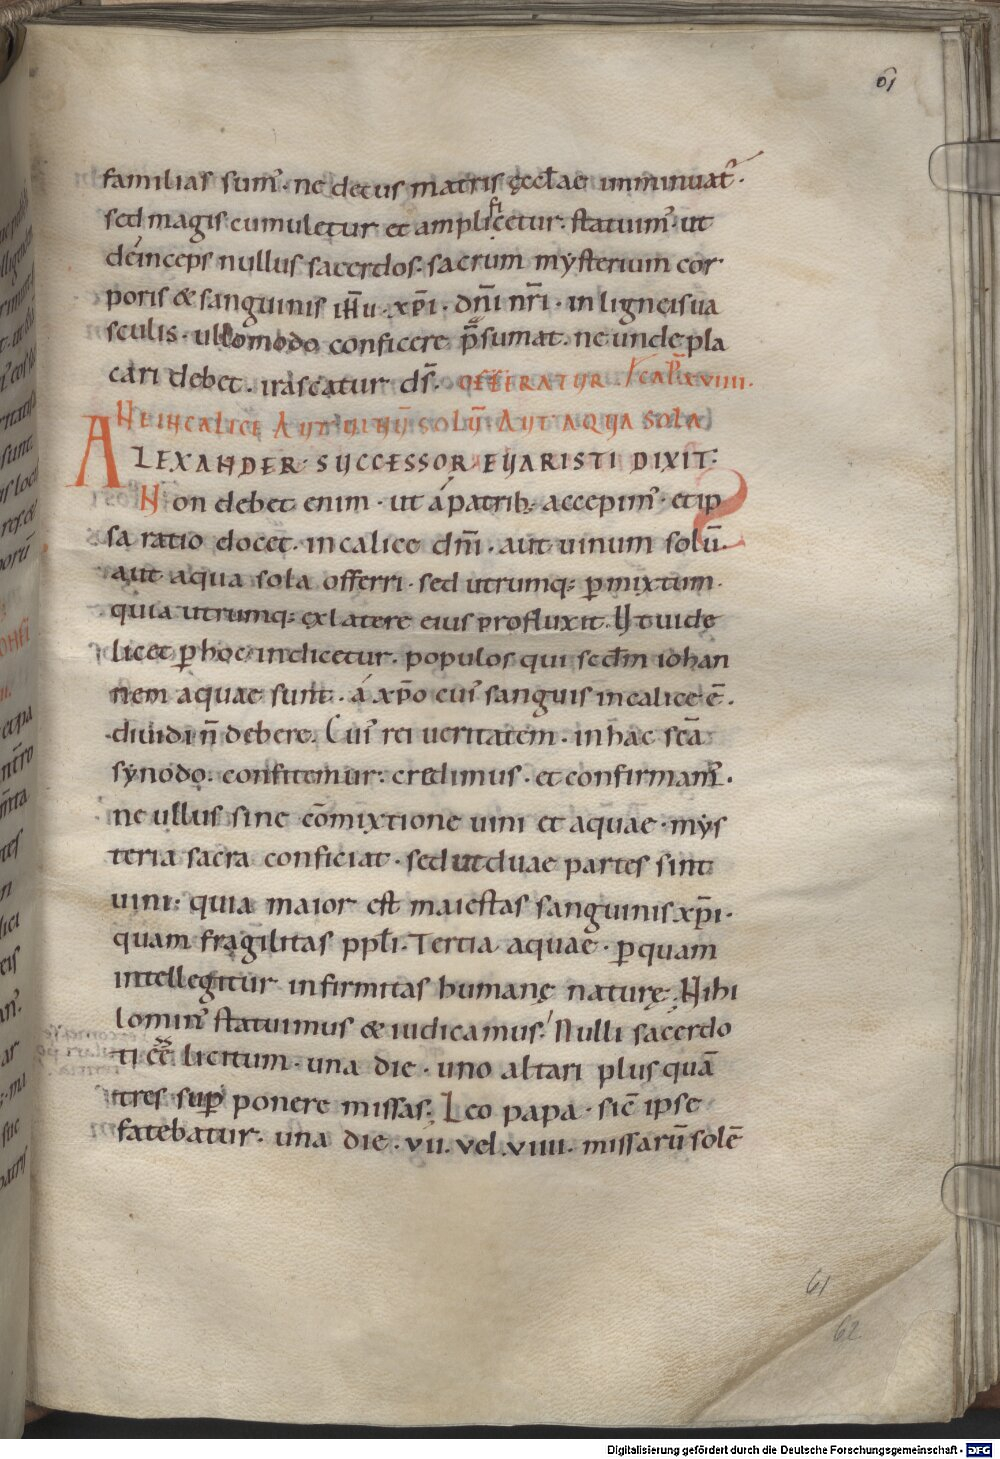 61
familias sum᷒. ne decus matris ęccl̄ae imminuat᷒.
sed magis cumuletur et amplificetur. statuim᷒. ut
deinceps nullus sacerdos. sacrum mysterium cor
poris & sanguinis ih̄u. xp̄i. dn̄i nr̄i. in ligneis ua
sculis. ullomodo conficere p̄sumat. ne unde pla
cari debet. irascatur ds̄. OFFERATUR. CAP XVIIII.
NE IN CALICE AUT VINŪ SOLŪ. AUT AQUA SOLA
ALEXANDER SUCCESSOR EUARISTI DIXIT:
Non debet enim. ut á patrib; accepim᷒. et ip
sa ratio docet. in calice dn̄i. aut uinum solū.
aut aqua sola offerri. sed utrumq; p̱mixtum.
quia utrumq; ex latere eius profluxit. Ut uide
licet p̱ hoc indicetur. populos qui secd̄m iohan
nem aquae sunt. á xp̄o cui᷒ sanguis in calice ē.
diuidi n̄ debere. Cui᷒ rei ueritatem. in hac scā
synodo. confitemur. credimus. et confirmam᷒.
ne ullus sine cōmixtione uini et aquae. mys
teria sacra conficiat. sed ut duae partes sint
uini. quia maior est maiestas sanguinis xp̄i.
quam fragilitas ppl̄i. Tertia aquae. p̱ quam
intellegitur infirmitas humanę naturę. Nihi
lomin᷒ statuimus & iudicamus. Nulli sacerdo
ti ēē licitum. una die. uno altari plus quā
tres sup̱ ponere missas. Leo papa. sic̄ ipse
fatebatur. una die. vii. vel. viiii. missarū solē
61
62
Digitalisierung gefördert durch die Deutsche Forschungsgemeinschaft - DFG